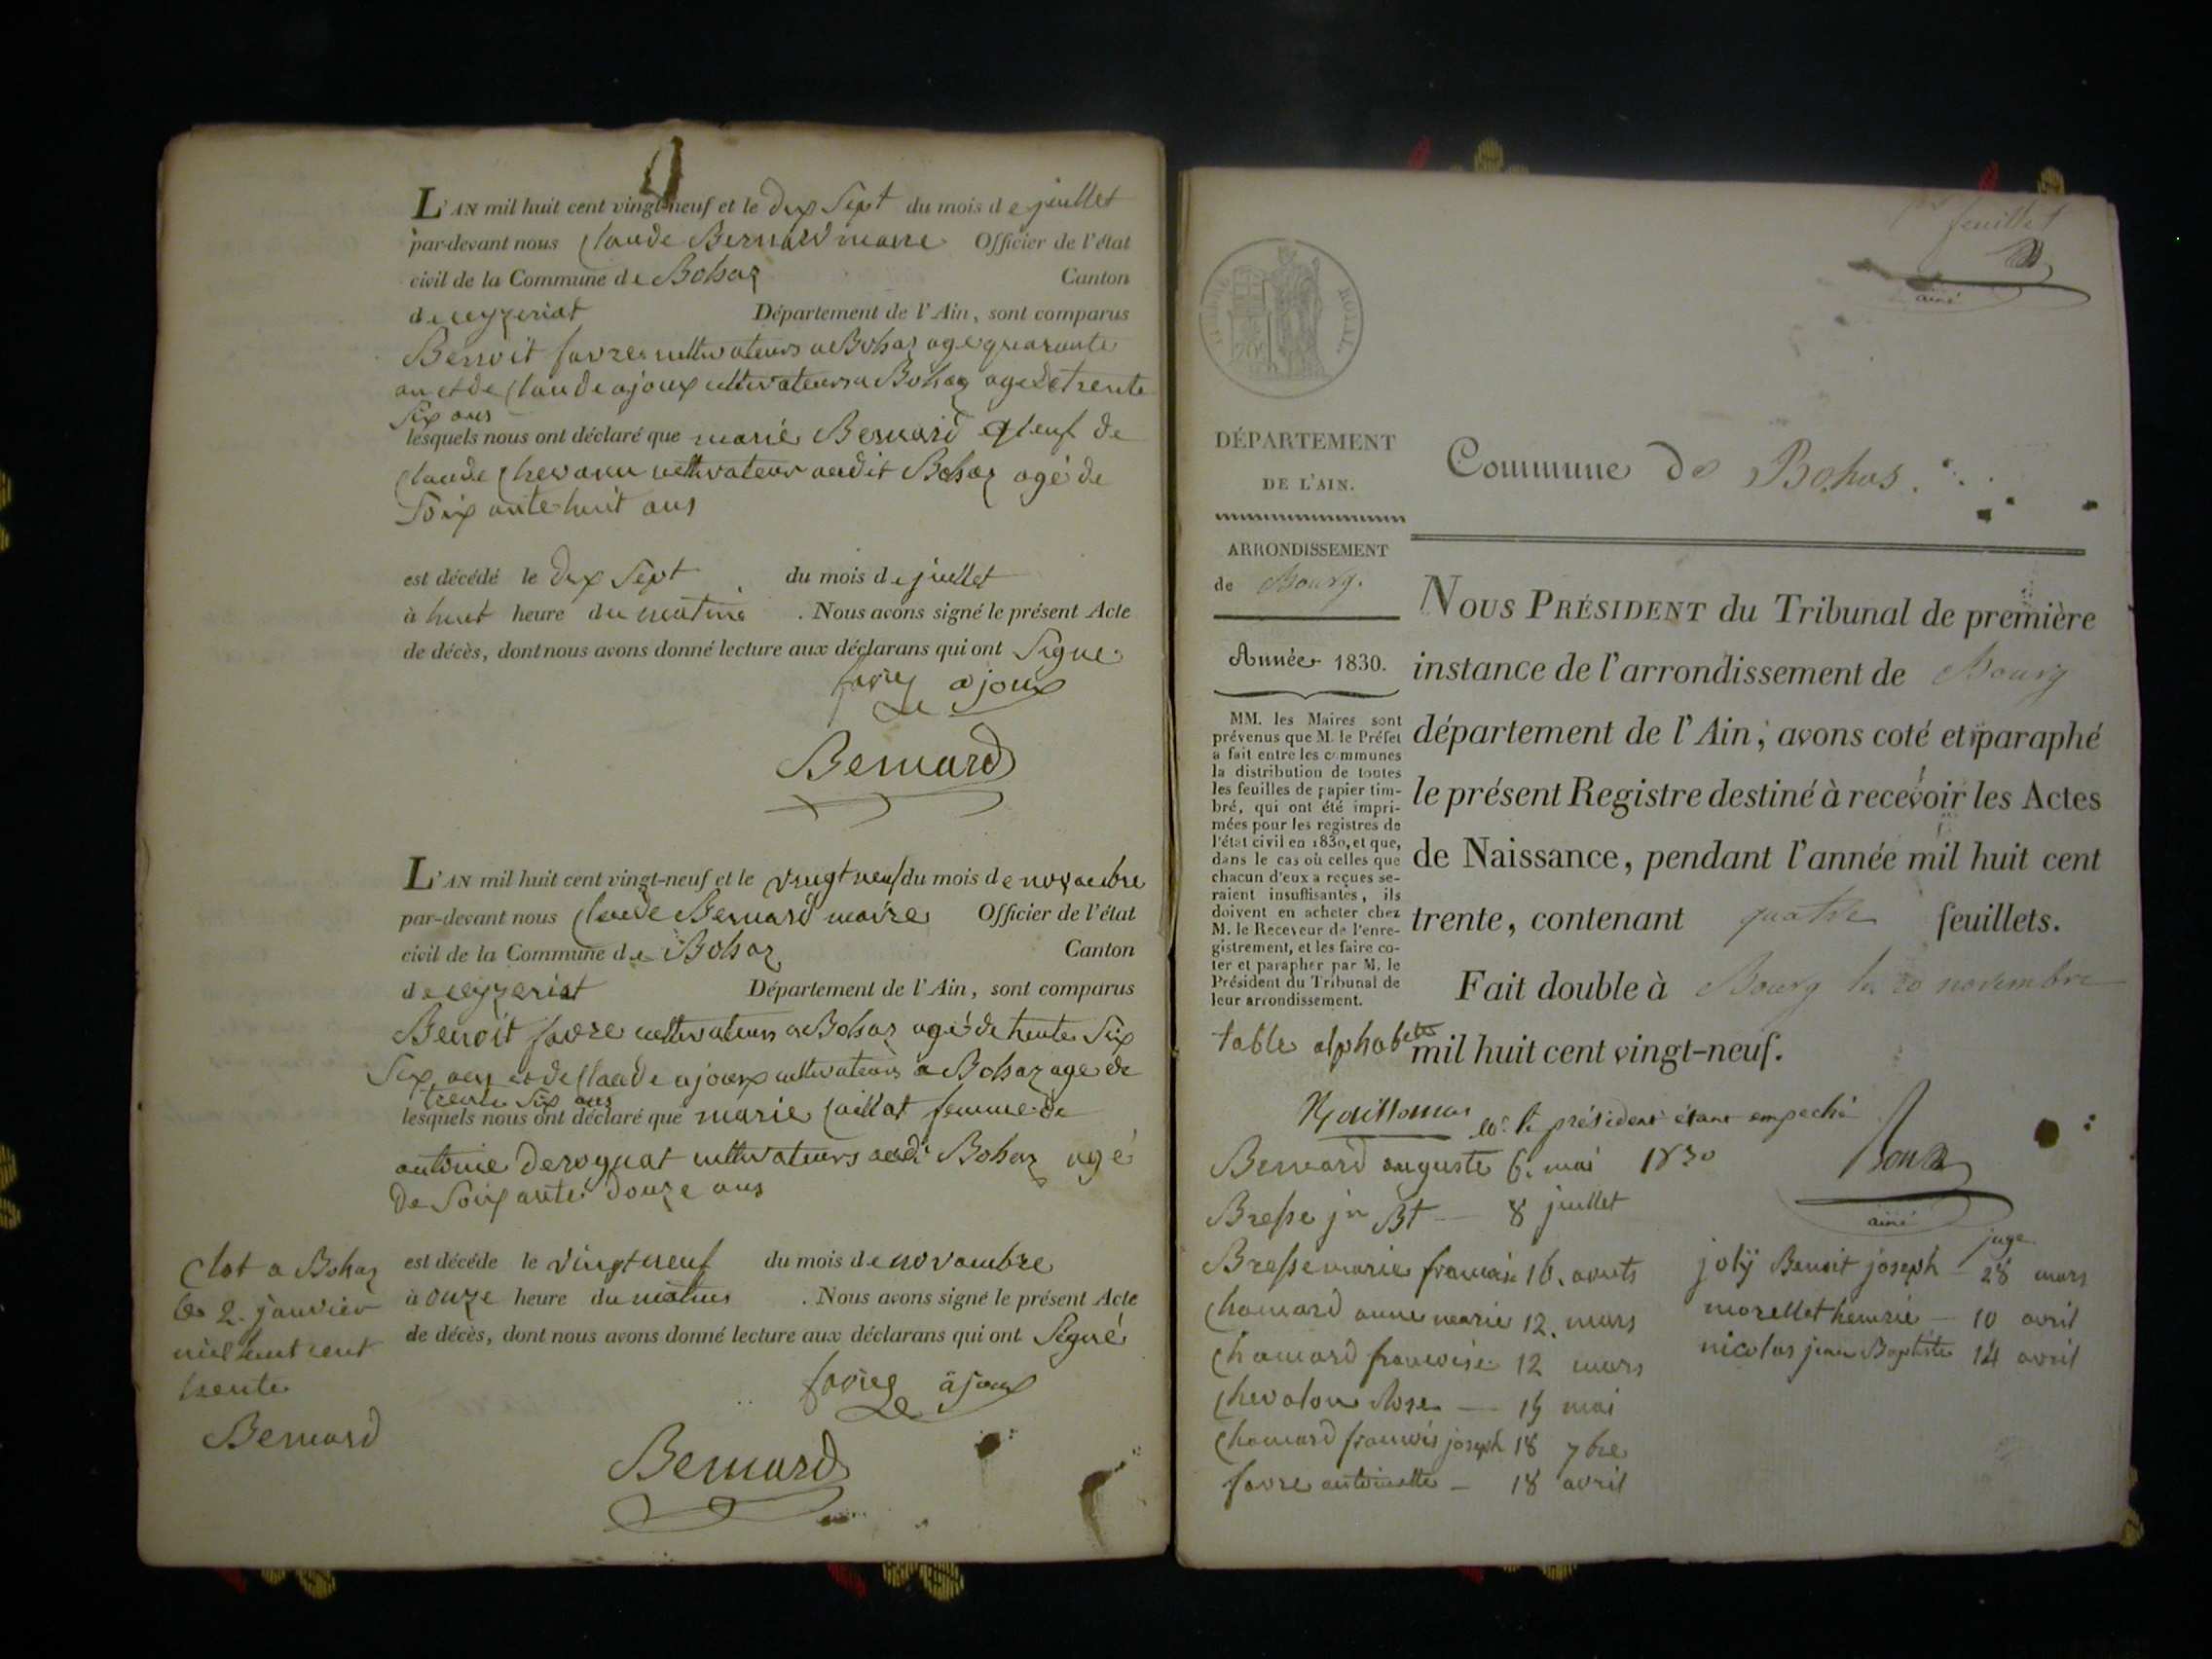 L'AN mil huit cent vingt-neuf et le dix Sept du mois de juillet
par-devant nous Claude Bernard maire Officier de l'état
civil de la Commune de Bohaz Canton
de ceyzeriat Département de l'Ain, sont comparus
Benoit favre cultivateurs a Bohaz age quarante
an et de Claude ajoux cultivateurs a Bohaz age de trente
Six ans
lesquels nous ont déclaré que marie Bernard de
Claude cultivateur audit Bohaz agé de
Soixante huit ans
est décédé le dix Sept du mois de juillet
à huit heure du matine . Nous avons signé le présent Acte
de décès, dont nous avons donné lecture aux déclarans qui ont Signe
favre ajoux
Bernard
L'AN mil huit cent vingt-neuf et le vingt neuf du mois de novambre
par-devant nous Claude Bernard maire Officier de l'état
civil de la Commune de Bohaz Canton
de ceyzeriat Département de l'Ain, sont comparus
Benoit favre cultivateurs a Bohaz agé de trente Six
Six ans et de Claude ajoux cultivateurs a Bohaz age de
trente Six ans
lesquels nous ont déclaré que marie femme de
antoine deroguat cultivateurs audi Bohaz agé
de Soixante douze ans
est décédé le vingt neuf du mois de novambre
à onze heure du matin . Nous avons signé le présent Acte
de décès, dont nous avons donné lecture aux déclarans qui ont Signé
favre ajoux
Bernard
Clot a Bohaz
le 2. janvier
mil huit cent
trente
Bernard
feuillet
ainé
TIMBRE ROYAL
DÉPARTEMENT
DE L'AIN.
ARRONDISSEMENT
de Bourg.
Année 1830.
MM. les Maires sont
prévenus que M. le Préfet
a fait entre les communes
la distribution de toutes
les feuilles de papier tim-
bré, qui ont été impri-
mées pour les registres de
l'état civil en 1830, et que,
dans le cas où celles que
chacun d'eux a reçues se-
raient insuffisantes, ils
doivent en acheter chez
M. le Receveur de l'enre-
gistrement, et les faire co-
ter et parapher par M. le
Président du Tribunal de
leur arrondissement.
Commune de Bohas.
NOUS PRÉSIDENT du Tribunal de première
instance de l'arrondissement de Bourg
département de l'Ain, avons coté et paraphé
le présent Registre destiné à recevoir les Actes
de Naissance, pendant l'année mil huit cent
trente, contenant quatre feuillets.
Fait double à Bourg le 20 novembre
mil huit cent vingt-neuf.
table alphabete
Mr. le président étant empeché
ainé
juge
Bernard auguste 6. mai 1830
Bresse jn Bt — 8 juillet
Bresse marie francoise 16. aouts
Chanard anne marie 12. mars
Chanard francoise 12 mars
Chevalon Rose — 19 mai
Chanard francois joseph 18 7bre
favre antoinette — 18 avril
joly Benoit joseph — 28 mars
morellet henrie — 10 avril
nicolas jean Baptiste 14 avril